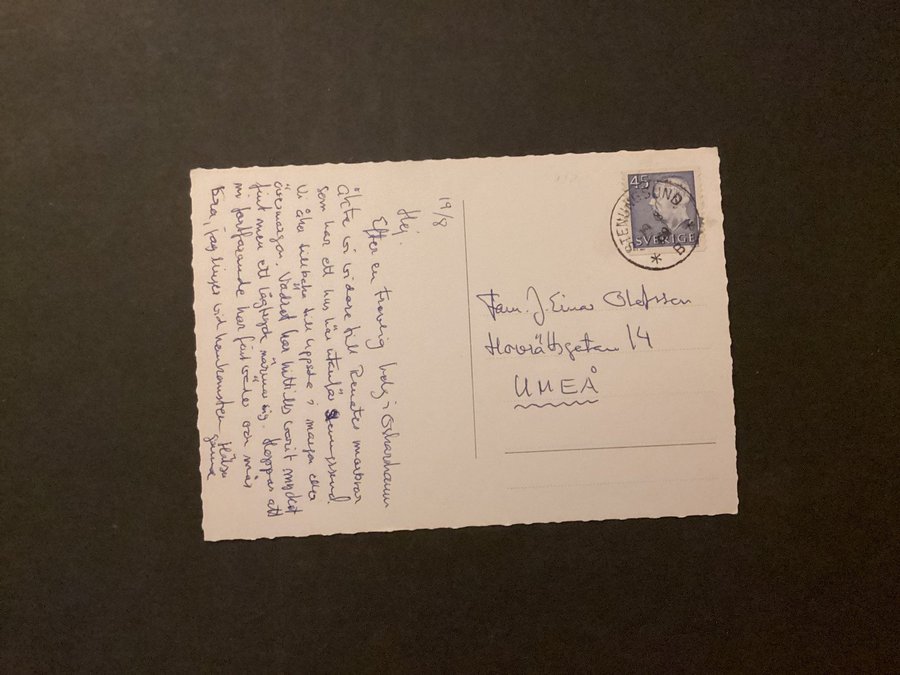 19/8
Hej.
Efter en trevlig helg i Oskarshamn
åkte vi vidare till Renates morbror
som har ett hus här utanför Stenungssund.
Vi åka tillbaka till Uppsala i morgon eller
övermorgon. Vädret har hittills varit mycket
fint men ett lågtryck närmar sig. Hoppas att
ni fortfarande har fint väder och mår
bra, jag ringer vid hemkomsten. Hälsn
45
STENUNGSUND
SVERIGE
Fam. J. Einar Olofsson
Hovrättsgatan 14
UMEÅ